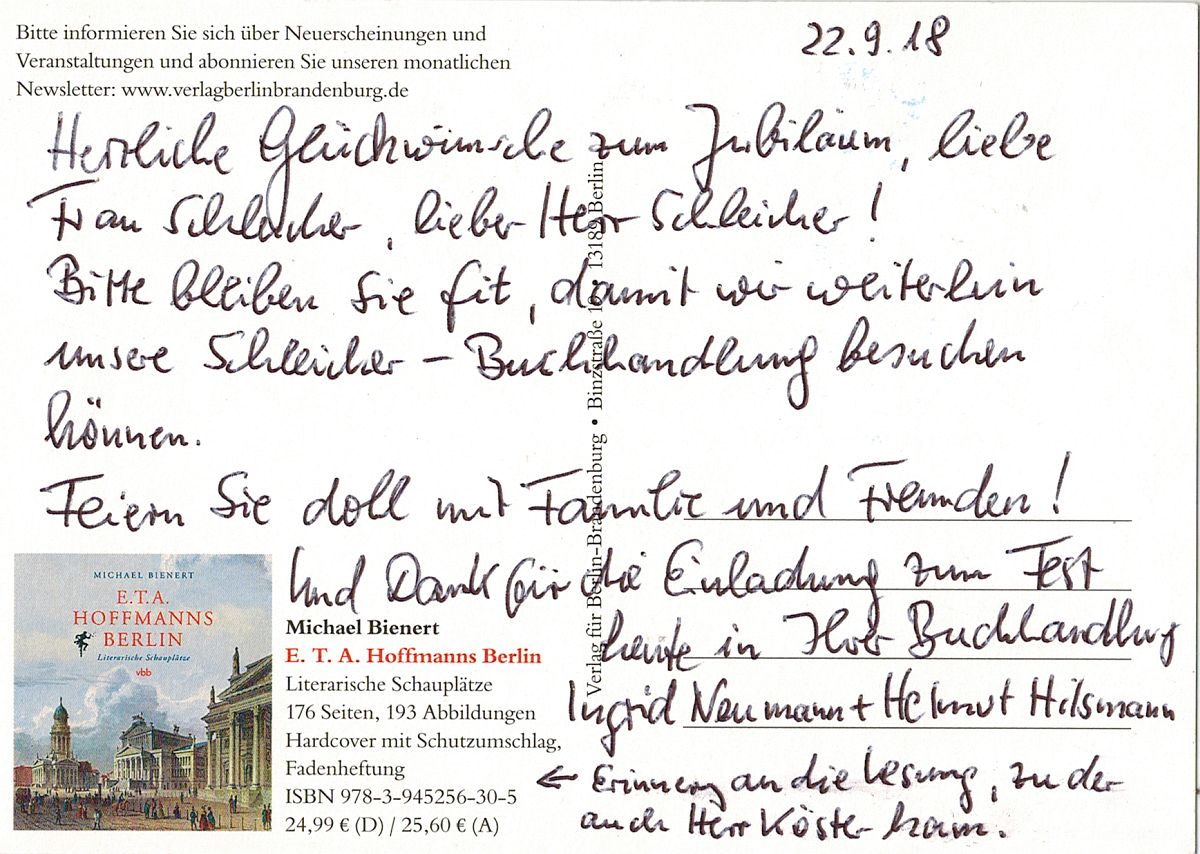 Bitte informieren Sie sich über Neuerscheinungen und
Veranstaltungen und abonnieren Sie unseren monatlichen
Newsletter: www.verlagberlinbrandenburg.de
22.9.18
Herzliche Glückwünsche zum Jubiläum, liebe
Frau Schleicher, lieber Herr Schleicher!
Bitte bleiben Sie fit, damit wir weiterhin
unsere Schleicher – Buchhandlung besuchen
können.
Feiern Sie doll mit Familie und Freunden!
Und Dank für die Einladung zum Fest
heute in Ihrer Buchhandlung
Ingrid Neumann + Helmut Hilsmann
← Erinnerg an die Lesung, zu der
auch Herr Köster kam.
Verlag für Berlin-Brandenburg • Binzstraße 19 • 13189 Berlin
MICHAEL BIENERT
E.T.A.
HOFFMANNS
BERLIN
Literarische Schauplätze
vbb
Michael Bienert
E. T. A. Hoffmanns Berlin
Literarische Schauplätze
176 Seiten, 193 Abbildungen
Hardcover mit Schutzumschlag,
Fadenheftung
ISBN 978-3-945256-30-5
24,99 € (D) / 25,60 € (A)